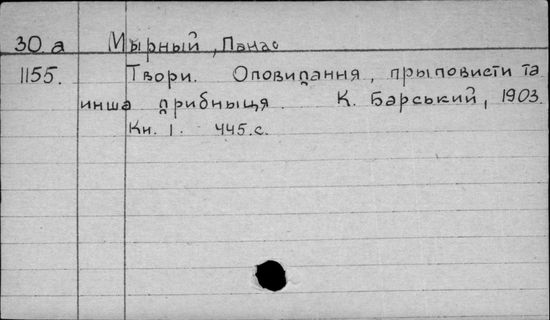 30.a Мырный, Панас
1155. Твори. Оповидання, прыповисти та
инша дрибныця. К. Барський, 1903.
Кн. 1. 445.с.